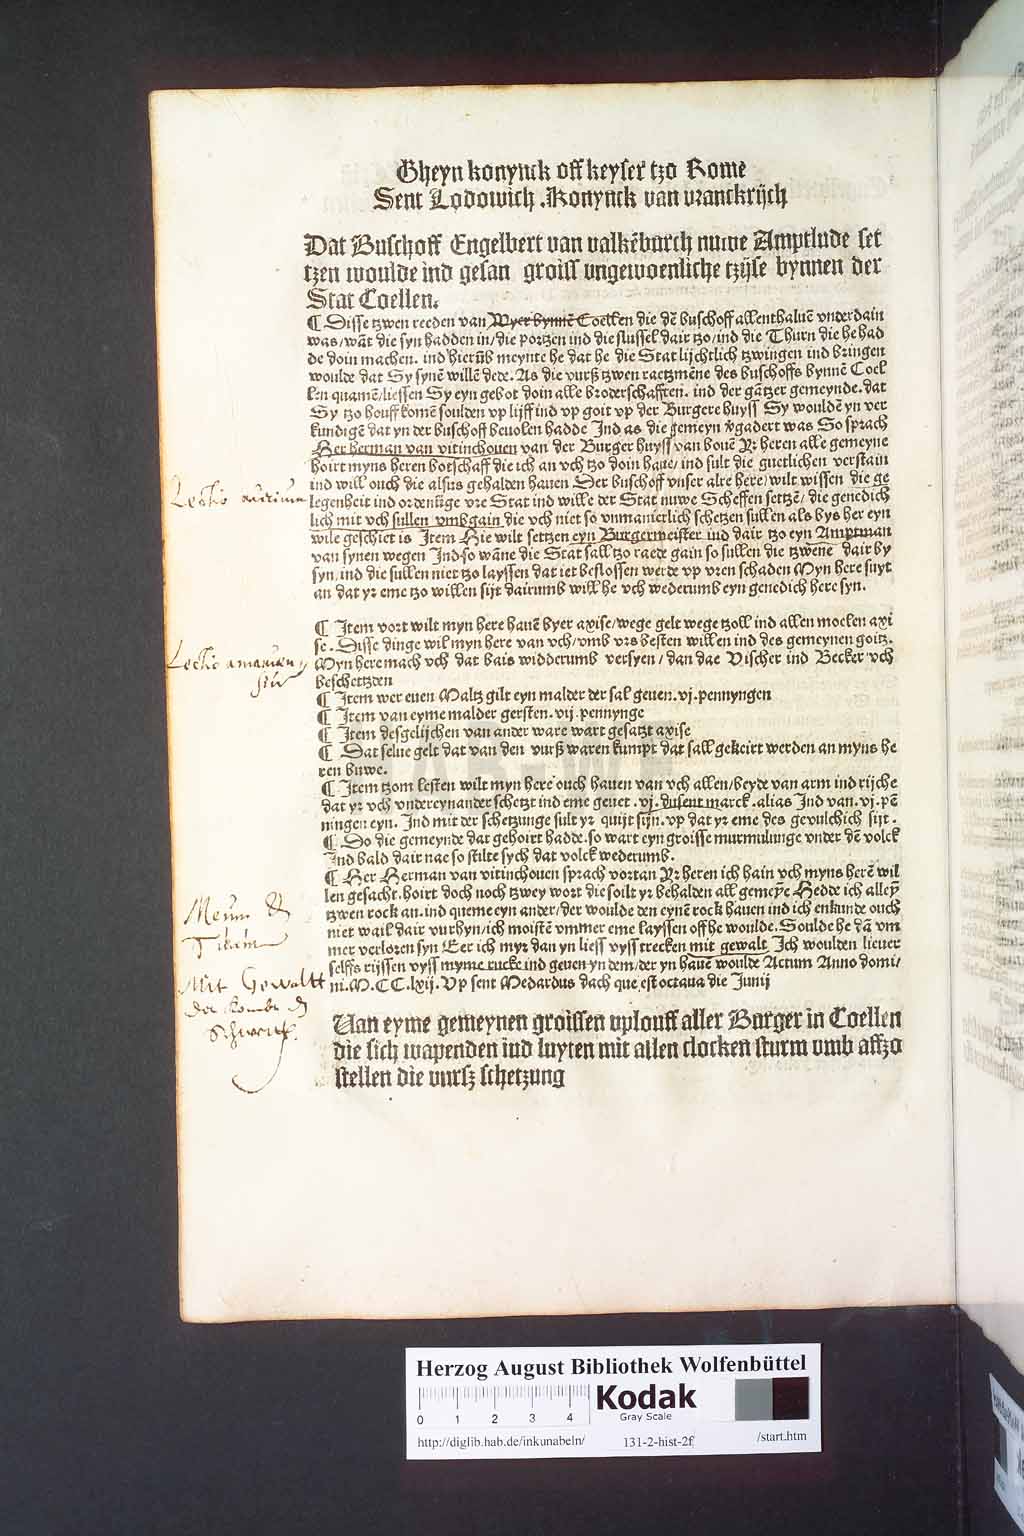 Gheyn konynck off keyser tzo Rome
Sent Lodowich .Konynck van vranckrijch
Dat Buschoff Engelbert van valkēburch nuwe Amptlude set
tzen woulde ind gesan groiss vngewoenliche tzijse bynnen der
Stat Coellen.
¶ Disse tzwen reeden van Wyer bynnē Coellen die dē buschoff allenthaluē vnderdain
was/wāt die syn hadden in/die portzen ind die slussel dair tzo/ind die Thurn die he had
de doin machen. ind hierūb meynte he dat he die Stat lijchtlich tzwingen ind bringen
woulde dat Sy synē willē dede. As die vurß tzwen raetzmēne des buschoffs bynnē Coel
len quamē/liessen Sy eyn gebot doin alle broderschafften. ind der gātzer gemeynde. dat
Sy tzo houff komē soulden vp lijff ind vp goit vp der Burgere huyss Sy wouldē yn ver
kundigē dat yn der buschoff beuolen hadde Ind as die gemeyn v̄gadert was So sprach
Her herman van vitinchouen van der Burger huyss van bouē Yr heren alle gemeyne
hoirt myns heren botschaff die ich an vch tzo doin haue/ ind sult die guetlichen verstain
ind will ouch die alsus gehalden hauen Der buschoff vnser alre here/ wilt wissen die ge
legenheit ind ordenūge vre Stat ind wille der Stat nuwe Scheffen setzē/ die genedich
lich mit vch sullen vmbgain die vch niet so vnmanierlich schetzen sullen als bys her eyn
wile geschiet is Item Hie wilt setzen eyn Burgermeister ind dair tzo eyn Amptman
van synen wegen Ind so wāne die Stat sall tzo raede gain so sullen die tzwene dair by
syn. ind die sullen niet tzo layssen dat iet beslossen werde vp vren schaden Myn here suyt
an dat yr eme tzo willen sijt dairumb will he vch wederumb eyn genedich here syn.
¶ Item vort wilt myn here hauē byer axise/wege gelt wege tzoll ind allen moelen axi
se. Disse dinge wil myn here van vch/vmb vrs besten willen ind des gemeynen goitz.
Myn here mach vch dat bais widderumb versyen/ dan dae Vischer ind Becker vch
beschettzden
¶ Item wer euen Maltz gilt eyn malder der sal geuen. vj. pennyngen
¶ Item van eyme malder gersten. vij. pennynge
¶ Item desgelijchen van ander ware wart gesatzt axise
¶ Dat selue gelt dat van den vurß waren kumpt dat sall gekeirt werden an myns he
ren buwe.
¶ Item tzom lesten wilt myn here ouch hauen van vch allen/beyde van arm ind rijche
dat yr vch vndereynander schetzt ind eme geuet .vj. dusent marck. alias Ind van. vj. pē
ningen eyn. Ind mit der schetzunge sult yr quijt sijn. vp dat yr eme des gevulchich sijt.
¶ Do die gemeynde dat gehoirt hadde. so wart eyn groisse murmulunge vnder dē volck
Ind bald dair nae so stilte sych dat volck wederumb.
¶ Her Herman van vitinchouen sprach vortan Yr heren ich hain vch myns herē wil
len gesacht. hoirt doch noch tzwey wort die soilt yr behalden all gemeyne Hedde ich alleyn
tzwen rock an. ind queme eyn ander/der woulde den eynē rock hauen ind ich enkunde ouch
niet wail dair vurhyn/ich moistē vmmer eme layssen off he woulde. Soulde he dā vm
mer verlozen syn Eer ich myr dan yn liess vyss trecken mit gewalt Ich woulden lieuer
selffs rijssen vyss myme rucke ind geuen yn dem/ der yn hauē woulde Actum Anno domi/
ni. M. CC. lxij. Vp sent Medardus dach que est octaua die Junij
Van eyme gemeynen groissen vplouff aller Burger in Coellen
die sich wapenden ind luyten mit allen clocken sturm vmb affzo
stellen die vursz schetzung
Lectio
Lectio
Meum &
Tuum
Mit Gewaltt
Herzog August Bibliothek Wolfenbüttel
0 1 2 3 4
Kodak
Gray Scale
http://diglib.hab.de/inkunabeln/ 131-2-hist-2f /start.htm